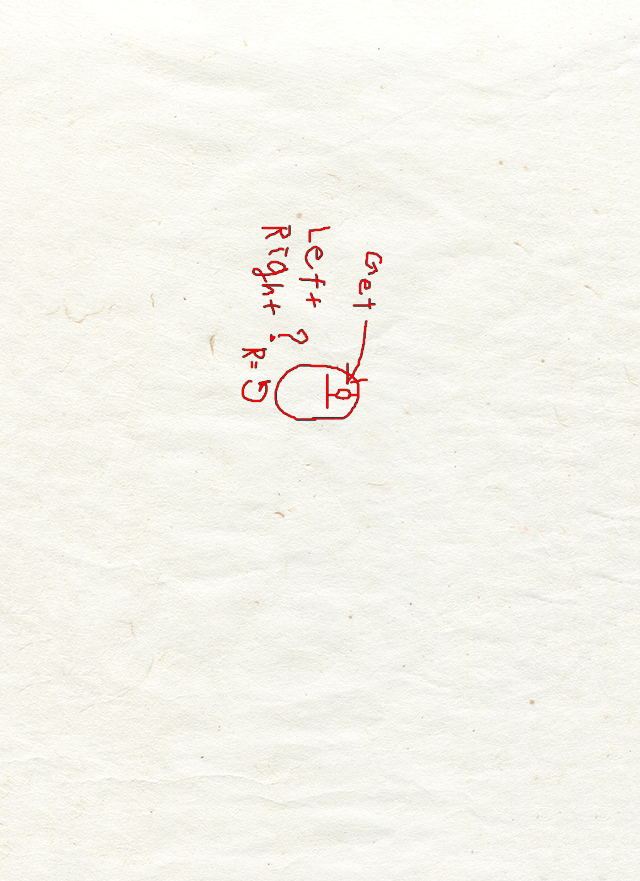 Get
Left
Right ?
R=5